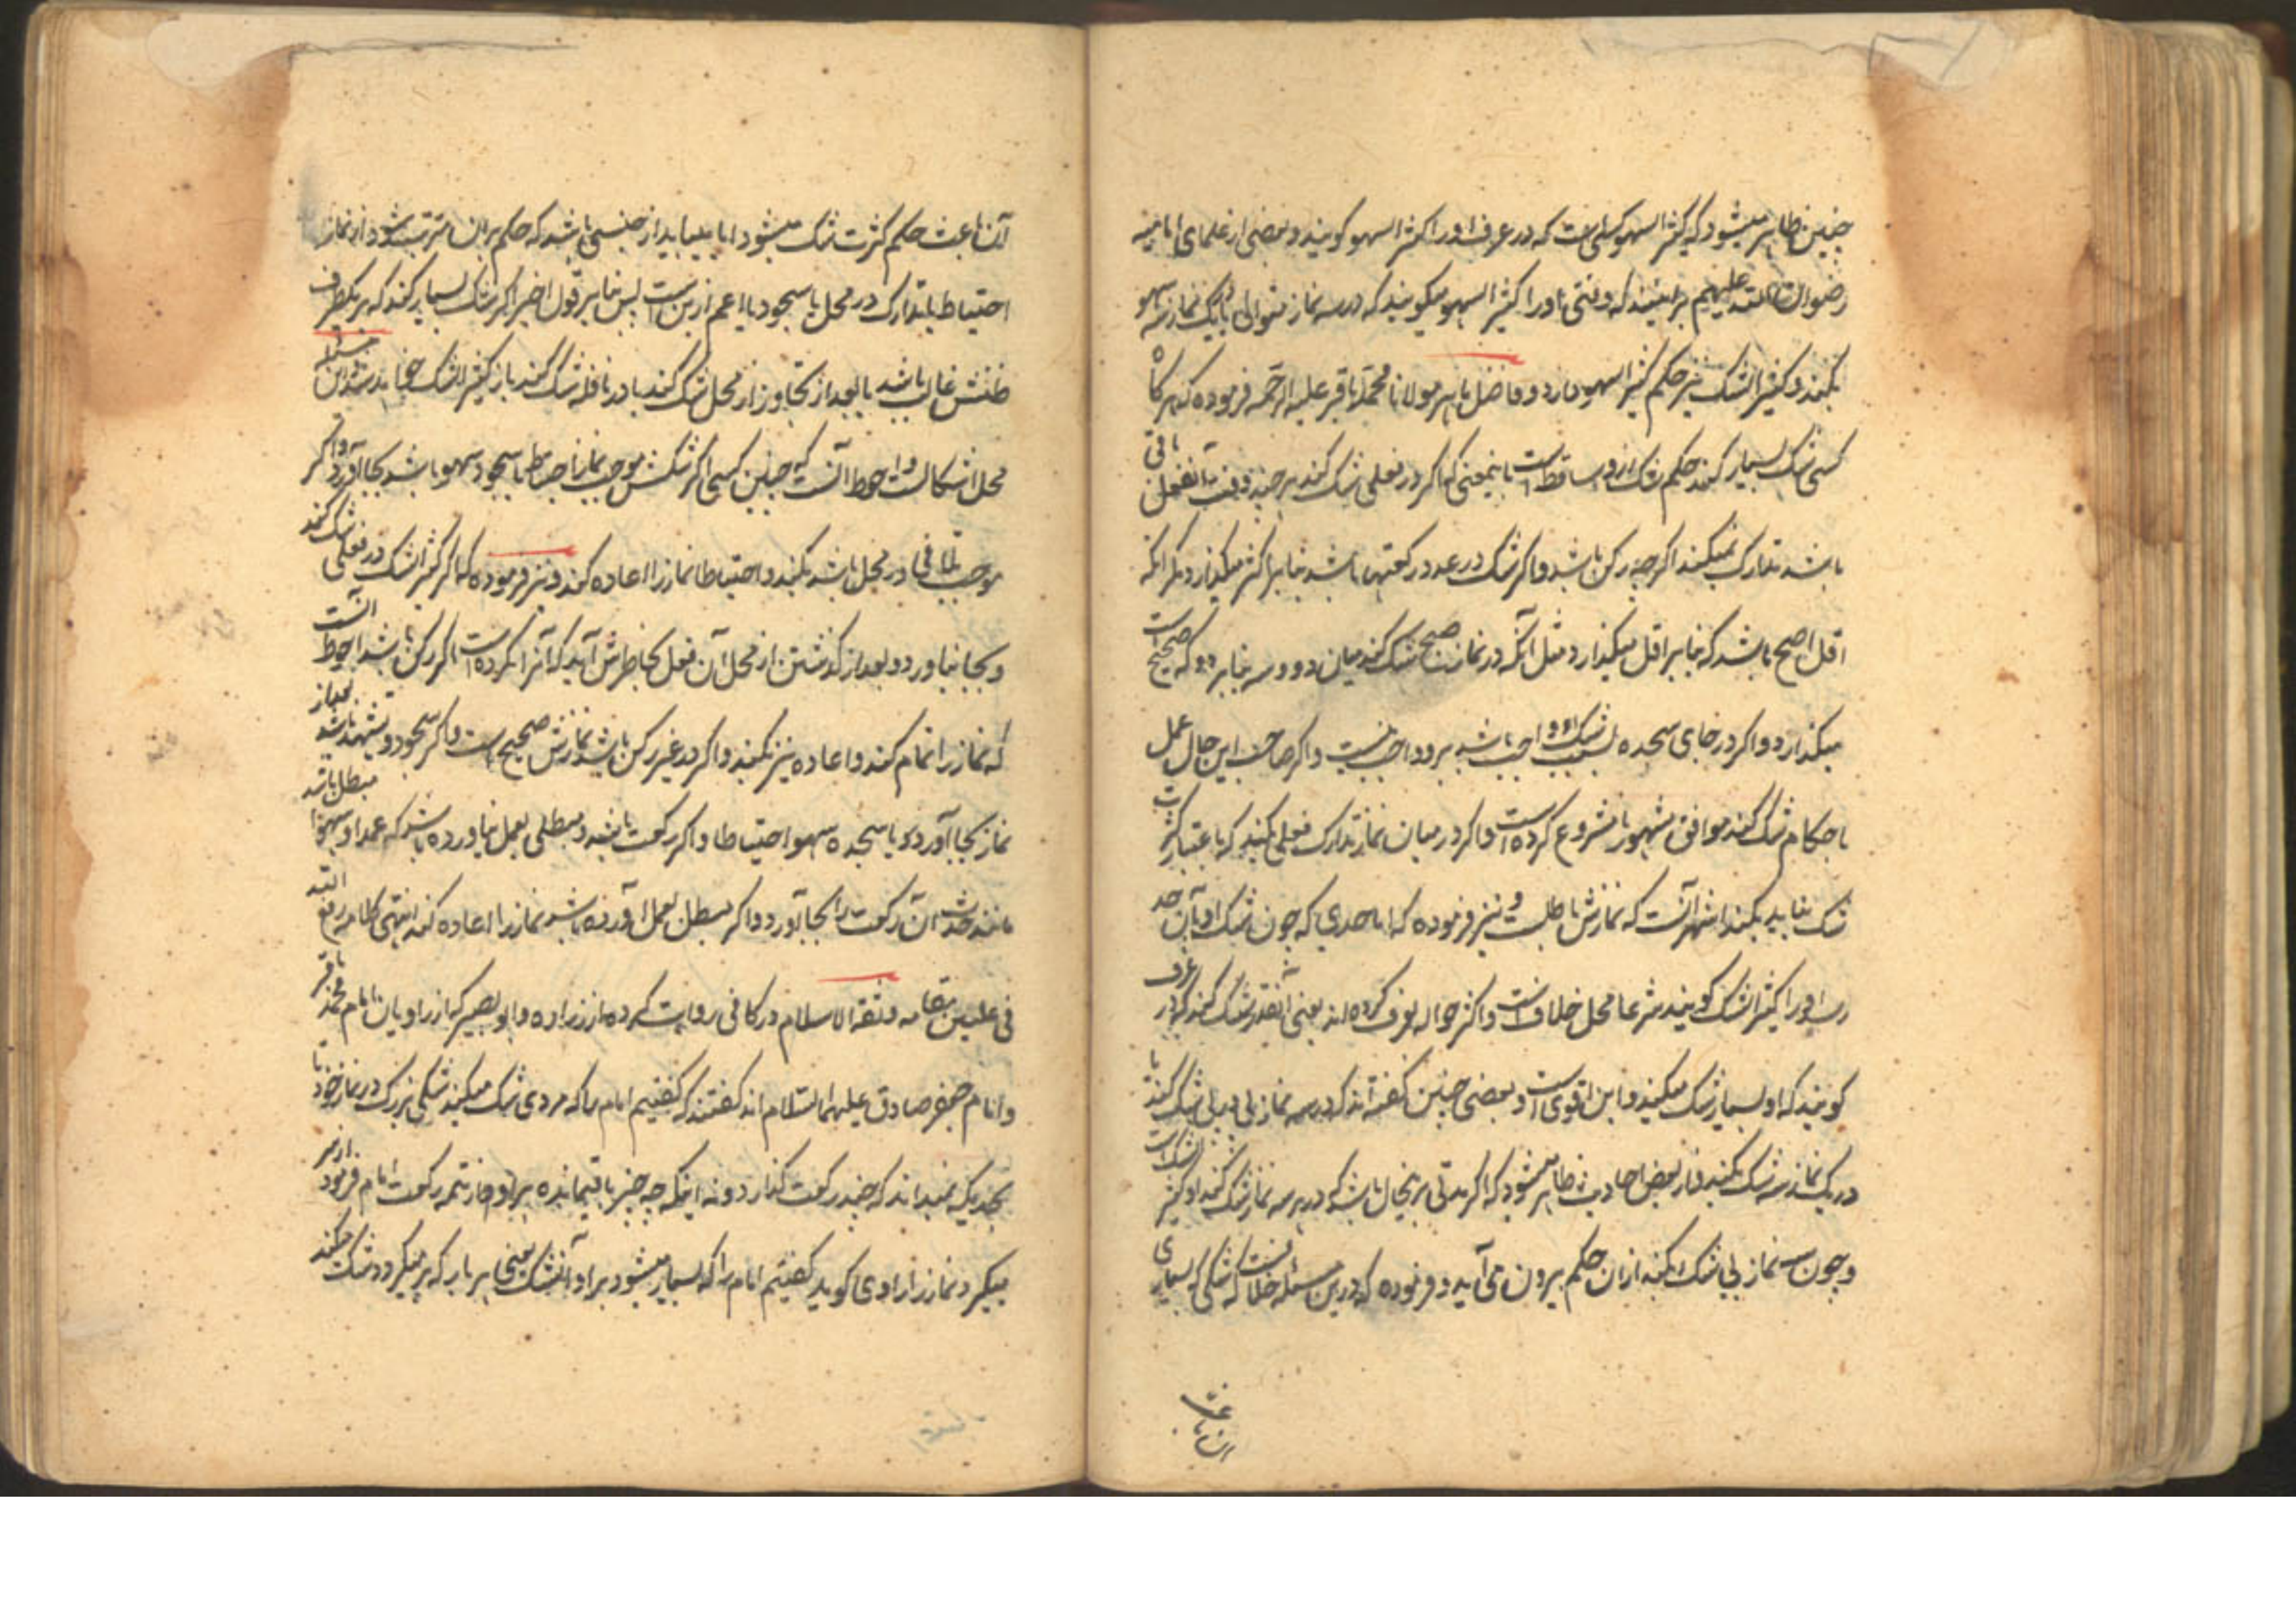 چنین ظاهر میشود که کثیر السهو کسی است که در عرف او را کثیر السهو کویند و بعضی از علمای امامیه
رضوان الله علیهم برانند که وقتی او را کثیر السهو میکویند که در سه نماز متوالی یا یک نماز سه سهو
بکند و کثیر الشک نیز حکم کثیر السهو دارد و فاضل ماهر مولانا محمد باقر علیه الرحمه فرموده که هر کاه
کسی شک بسیار کند حکم شک ازو ساقط است باینمعنی که اکر در فعلی شک کند هر چند وقت آنفعل باقی
باشد تدارک نمیکند اکرچه رکن باشد و اکر شک در عدد رکعتها باشد بنا بر اکثر میکذارد مکر آنکه
اقل اصح باشد که بنا بر اقل میکذارد مثل آنکه در نماز صبح شک کند میان دو و سه بنا بر دو که صحیح است
میکذارد و اکر در جای سجده بسبب شک او واجب باشد برو واجب نیست و اکر صاحب این حال عمل
باحکام شک کند موافق مشهور نامشروع کرده است و اکر در میان نماز تدارک فعلی بکند که باعتبار کثرت
شک نباید بکند اشهر آنست که نمازش باطلست و نیز فرموده که اما حدی که چون شک او بآن حد
رسد او را کثیر الشک کویند شرعا محل خلاف است و اکثر حواله بعرف کرده اند یعنی آنقدر شک کند که در عرف
کویند که او بسیار شک میکند و این اقوی است و بعضی چنین کفته اند که در سه نماز پی در پی شک کند یا
در یک نماز سه شک بکند و از بعض احادیث ظاهر میشود که اکر مدتی برینحال باشد که در هر سه نماز شک کند او کثیر الشک است
و چون سه نماز بی شک بکند ازان حکم بیرون می آید و فرموده که درین مسئله خلافست که شکی که بسیاری
آن باعث حکم کثرت شک میشود ایا میباید از جنسی باشد که حکم بران مترتب شود از نماز
احتیاط یا تدارک در محل یا سجود یا اعم ازین است پس بنا بر قول اخیر اکر شک بسیار کند که بر یکطرف
ظنش غالب باشد یا بعد از تجاوز از محل شک کند یا در نافله شک کند باز کثیر الشک خواهد شد و این مسئله
محل اشکال است و احوط آنست که چنین کسی اکر شکش موجب نماز احتیاط یا سجود سهو باشد بجا آورد و اکر
موجب تلافی در محل باشد بکند و احتیاطا نماز را اعاده کند و نیز فرموده که اکر کثیر الشک در فعلی شک کند
و بجا نیاورد و بعد از کذشتن از محل آن فعل بخاطرش آید که آنرا نکرده است اکر رکن باشد احوط آنست
که نماز را تمام کند و اعاده نیز بکند و اکر در غیر رکن باشد نمازش صحیح است و اکر سجود و تشهد باشد بعد از
نماز بجا آورد یا سجده سهو احتیاطا و اکر رکعت باشد و مبطلی بعمل نیاورده باشد که عمدا و سهوا مبطل باشد
مانند حدث آن رکعت را بجا آورد و اکر مبطل بعمل آورده باشد نماز را اعاده کند انتهی کلامه رفع الله
فی علیین مقامه و ثقة الاسلام در کافی روایت کرده از زراره و ابو بصیر که از راویان امام محمد باقر
و امام جعفر صادق علیهما السلام اند کفتند که کفتیم امام را که مردی شک میکند شکی بزرک در نماز خود تا
بحدیکه نمیداند که چند رکعت کذارد و نه اینکه چه چیز باقیمانده برو از تتمه رکعت امام فرمود از سر
میکیرد نماز را راوی کوید کفتیم امام را که بسیار میشود بر او آنشک یعنی هر بار که بر میکردد شک میکند